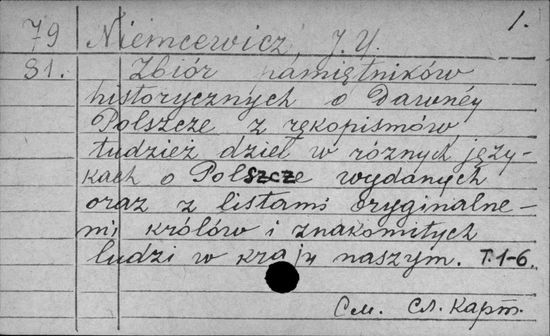 1.
79 Niemcewicz, J. U.
31. Zbiór pamiętników
historycznych o Dawnéy
Polszcze z rękopismów,
tudzież dzieł w różnych języ-
kach o Polszcze wydanych
oraz z listami oryginalne-
mi królów i znakomitych
ludzi w kraju naszym. T.1-6.
См. сл. карт.